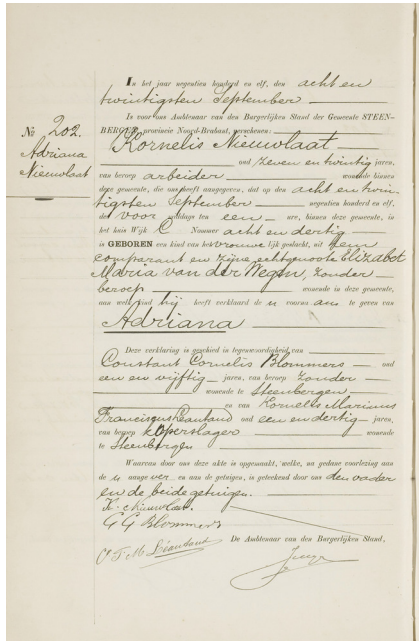 No 202.
Adriana
Nieuwlaat
In het jaar negentien honderd en elf, den acht en
twintigsten September
Is voor ons Ambtenaar van den Burgerlijken Stand der Gemeente STEEN-
BERGEN, provincie Noord-Brabant, verschenen:
Kornelis Nieuwlaat
oud zeven en twintig jaren,
van beroep arbeider wonende binnen
deze gemeente, die ons heeft aangegeven, dat op den acht en twin-
tigsten September negentien honderd en elf,
des voor middags ten een ure, binnen deze gemeente, in
het huis Wijk C Nommer acht en dertig
is GEBOREN een kind van het vrouwelijk geslacht, uit hem
comparant en zijne echtgenoote Elizabet
Maria van der Wegen, zonder
beroep wonende in deze gemeente,
aan welk kind hij heeft verklaard de voornaam te geven van
Adriana
Deze verklaring is geschied in tegenwoordigheid van
Constant Cornelis Blommers oud
een en vijftig jaren, van beroep zonder
wonende te Steenbergen
en van Kornelis Marinus
Franciscus Leautaud oud een en dertig jaren,
van beroep koperslager wonende
te Steenbergen
Waarvan door ons deze akte is opgemaakt, welke, na gedane voorlezing aan
de aangever en aan de getuigen, is geteekend door ons den vader
en de beide getuigen.
K. Nieuwlaat.
C C Blommers
De Ambtenaar van den Burgerlijken Stand,
Léautaud